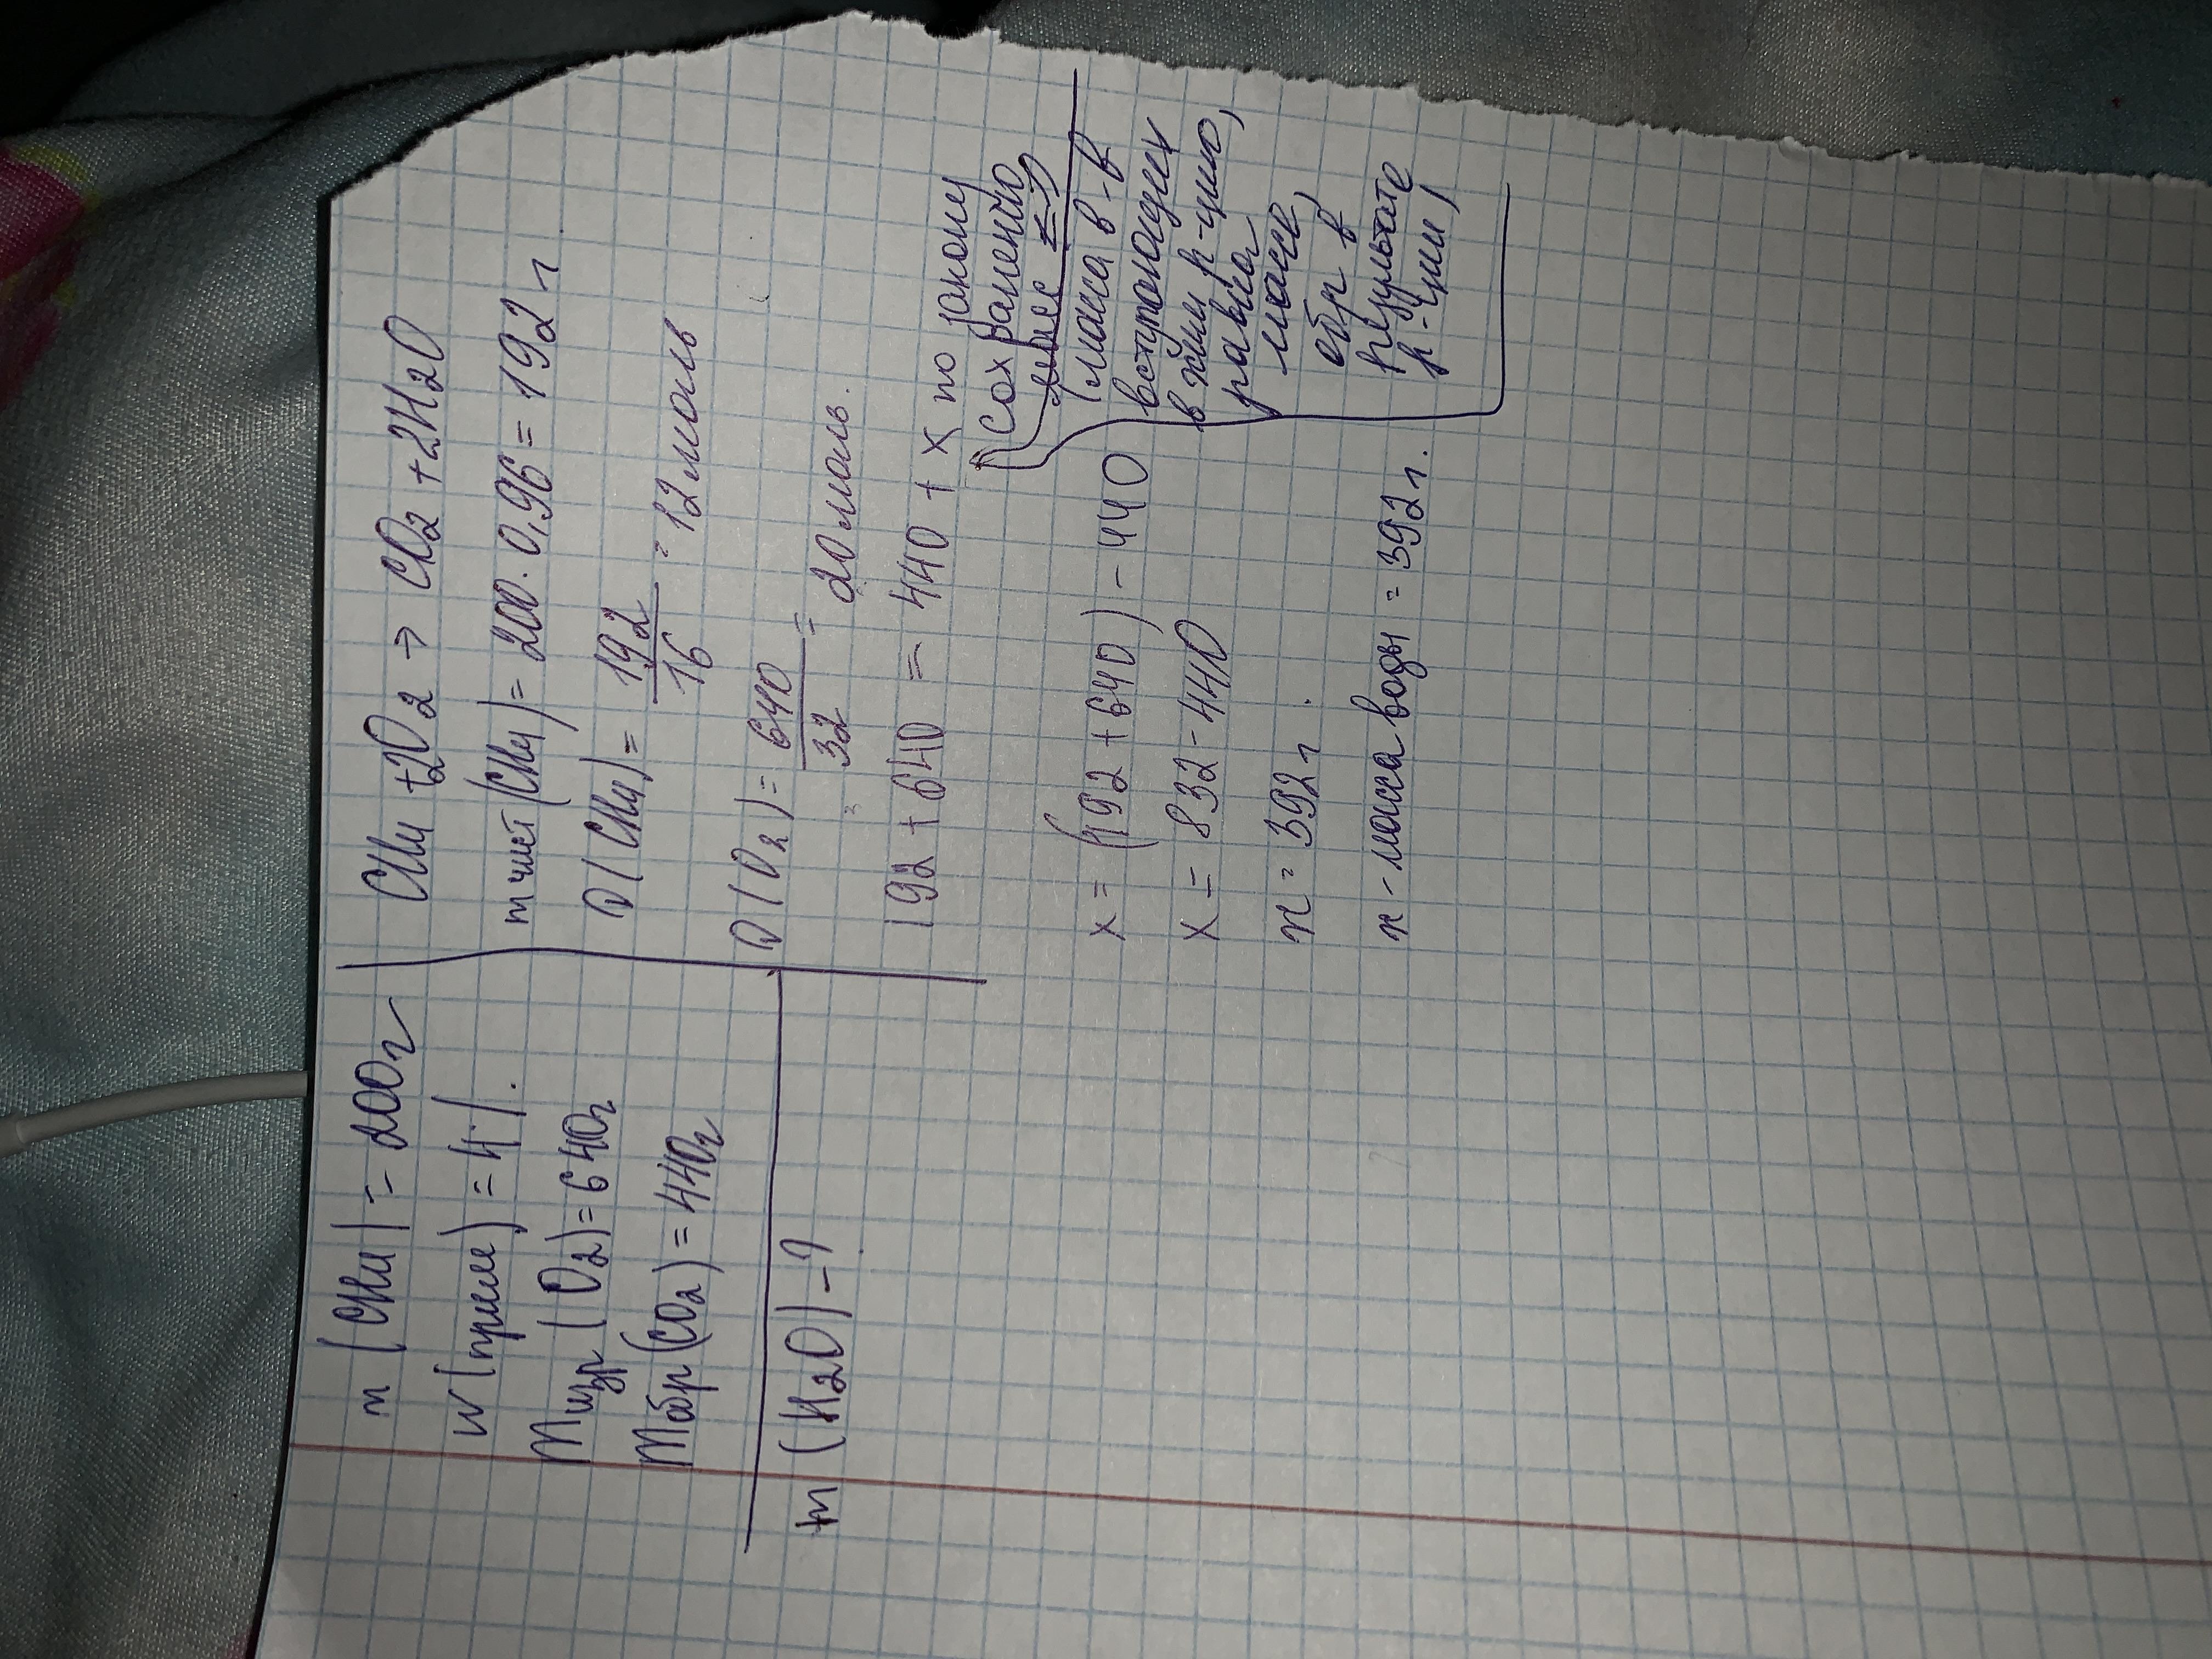 m (CH4) = 200г
W (прим) = 4%.
m изр (O2) = 640г
m обр (CO2) = 440г
m (H2O) - ?
CH4 + 2O2 → CO2 + 2H2O
m чист (CH4) = 200 · 0,96 = 192 г
ν (CH4) = 192/16 = 12 моль
ν (O2) = 640/32 =
= 20 моль.
192 + 640 = 440 + x по закону
сохранению
масс <=>
(масса в-в
вступающих
в хим р-цию,
равна
массе,
обр в
результате
р-ции)
x = (192 + 640) - 440
x = 832 - 440
x = 392 г.
x - масса воды = 392 г.